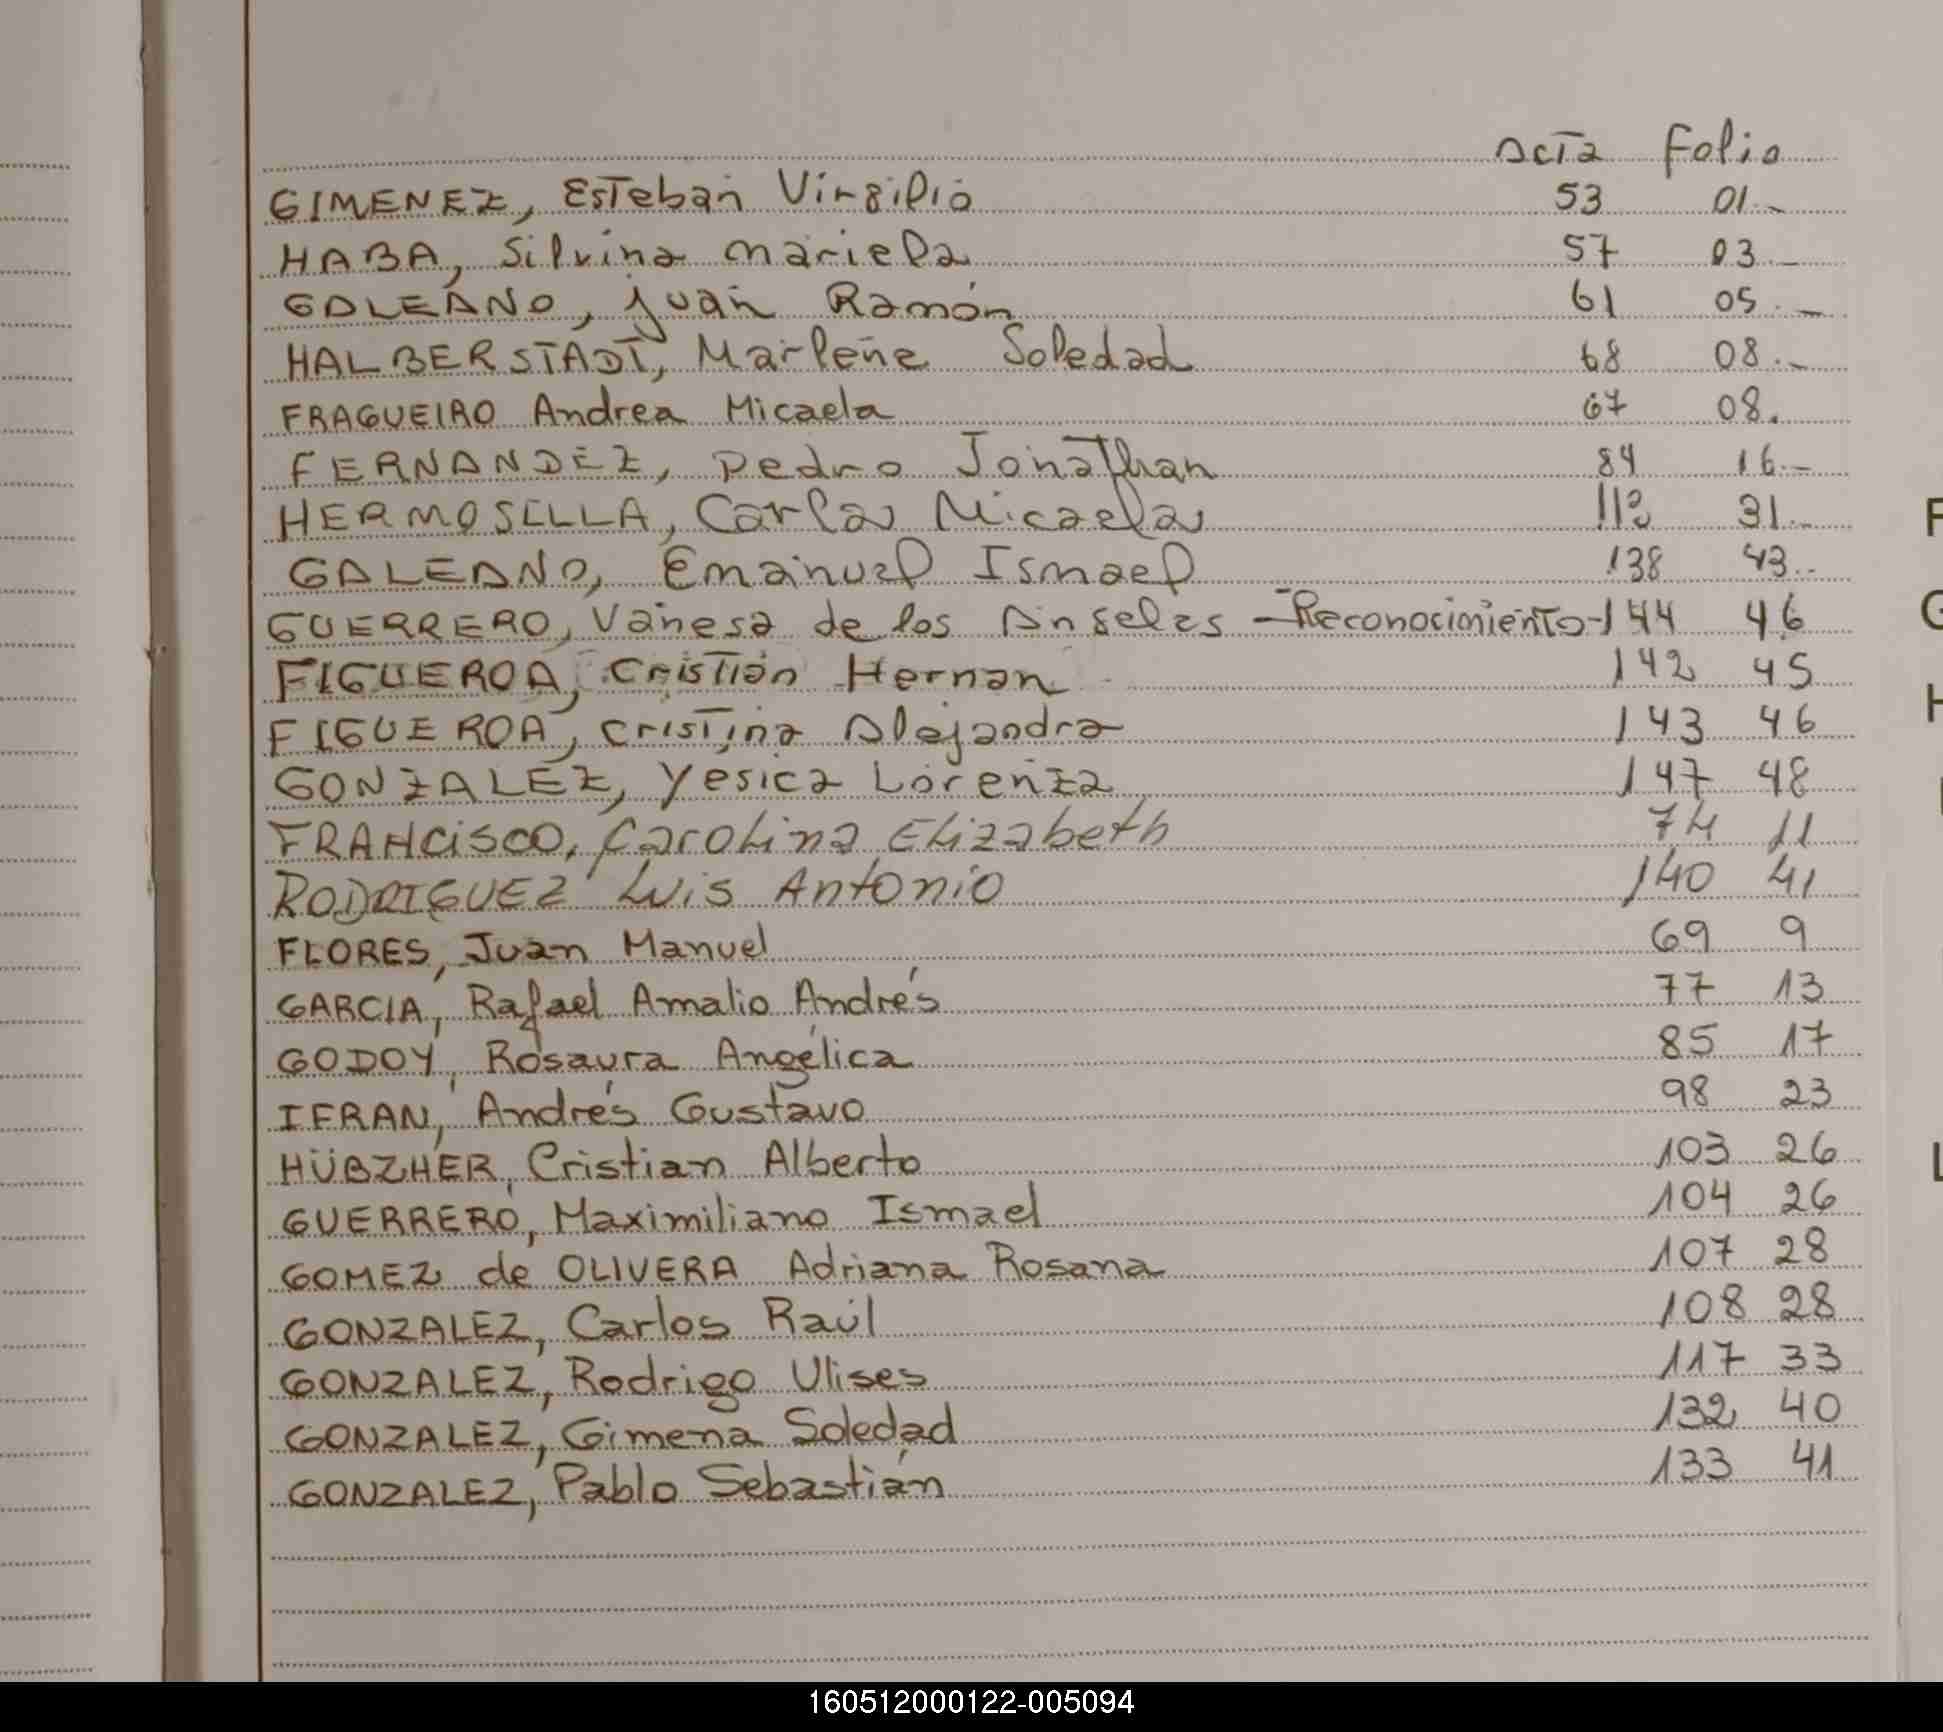 Acta Folio
GIMENEZ, Esteban Virgilio 53 01.-
HABA, Silvina Mariela 57 03.-
GALEANO, Juan Ramón 61 05.-
HALBERSTADT, Marlene Soledad 68 08.-
FRAGUEIRO Andrea Micaela 67 08.
FERNANDEZ, Pedro Jonathan 84 16.-
HERMOSILLA, Carla Micaela 112 31.-
GALEANO, Emanuel Ismael 138 43..
GUERRERO, Vanesa de los Angeles -Reconocimiento- 144 46
FIGUEROA, Cristian Hernan 142 45
FIGUEROA, Cristina Alejandra 143 46
GONZALEZ, Yesica Lorenza 147 48
FRANCISCO, Carolina Elizabeth 74 11
RODRIGUEZ Luis Antonio 140 41
FLORES, Juan Manuel 69 9
GARCIA, Rafael Amalio Andrés 77 13
GODOY, Rosaura Angélica 85 17
IFRAN, Andrés Gustavo 98 23
HÜBZHER, Cristian Alberto 103 26
GUERRERO, Maximiliano Ismael 104 26
GOMEZ de OLIVERA Adriana Rosana 107 28
GONZALEZ, Carlos Raúl 108 28
GONZALEZ, Rodrigo Ulises 117 33
GONZALEZ, Gimena Soledad 132 40
GONZALEZ, Pablo Sebastián 133 41
F
G
H
L
160512000122-005094